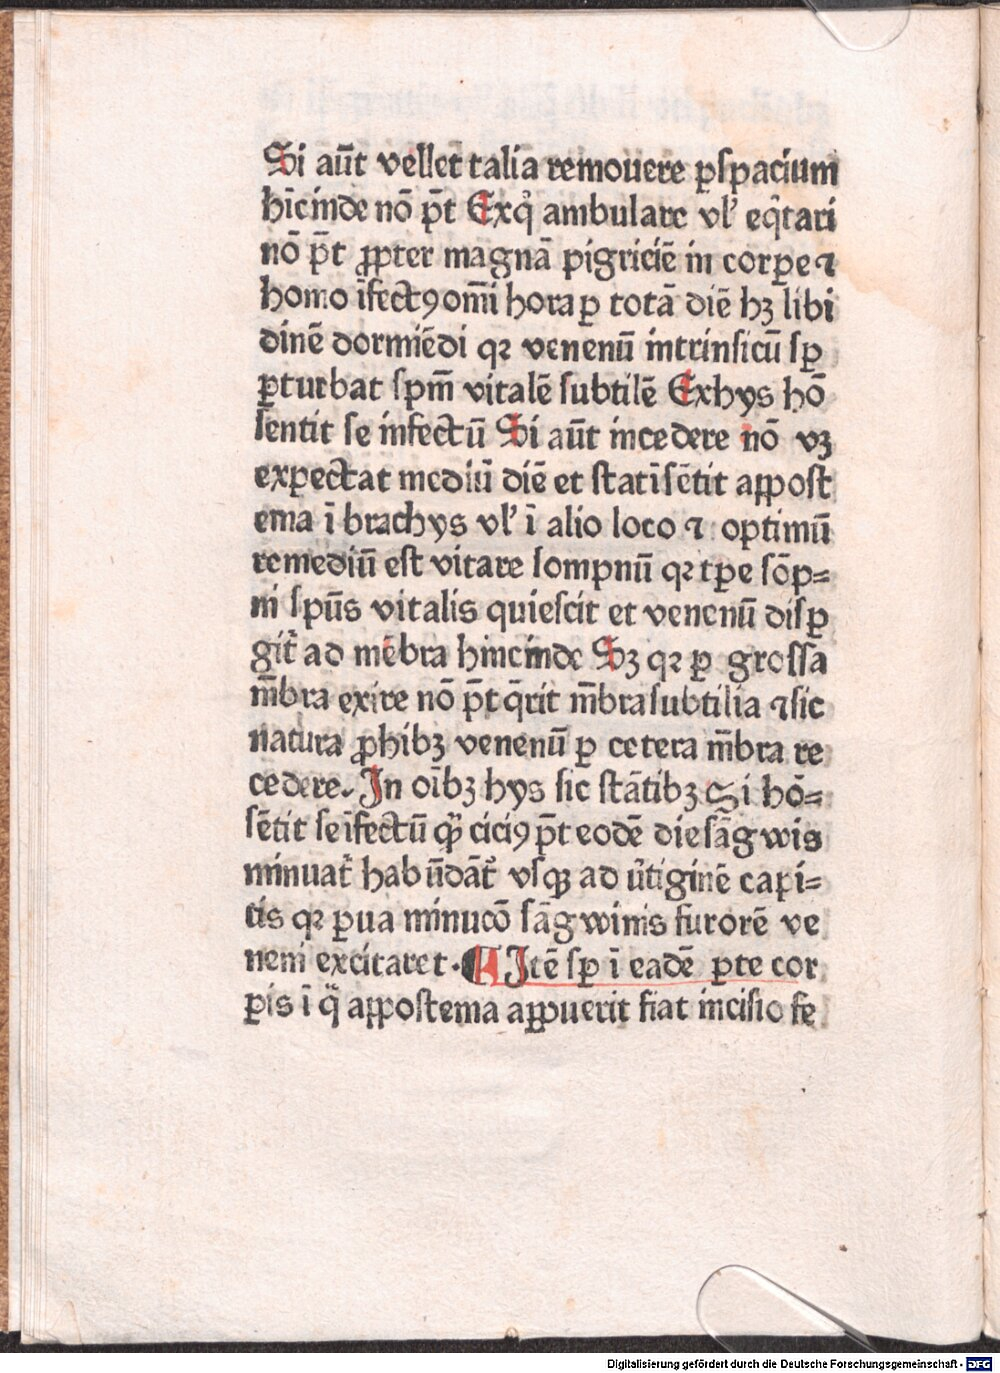 Si aūt vellet talia remouere ꝑspacium
hīcinde nō p̄t Exq̇ ambulare vl' eq̄tari
nō p̄t ꝓpter magnā pigriciē in corpe ⁊
homo īfectꝯ om̄i hora ꝑ totā diē hꝫ libi
dinē dormiēdi qꝛ venenū intrinsicū sꝑ
ꝑturbat spm̄ vitalē subtilē Exhys hō
sentit se infectū Si aūt incedere nō vꝫ
expectat mediū diē et statī sētit appost
ema ī brachys vl' ī alio loco ⁊ optimū
remediū est vitare sompnū qꝛ tꝑe sōp⸗
ni spūs vitalis quiescit et venenū disꝑ
git̄ ad mēbra hincinde Sꝫ qꝛ ꝑ grossa
m̄bra exire nō p̄t q̄rit m̄bra subtilia ⁊ sic
natura ꝓhibꝫ venenū ꝑ cetera m̄bra re
cedere. In oībꝫ hys sic stātibꝫ Si hō⸗
sētit se īfectū qͣꝫ ciciꝯ p̄t eodē die sāgwis
minuat̄ habūdāt̄ vsqꝫ ad v̄tiginē capi⸗
tis qꝛ ꝑua minucō sāgwinis furorē ve
neni excitaret. ¶ Itē sꝑ ī eadē ꝑte cor
ꝑis ī q̄ appostema apꝑuerit fiat incisio fe
Digitalisierung gefördert durch die Deutsche Forschungsgemeinschaft - DFG